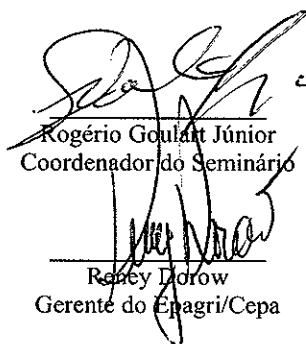 Rogério Goulart Júnior
Coordenador do Seminário
Reney Dorow
Gerente do Epagri/Cepa